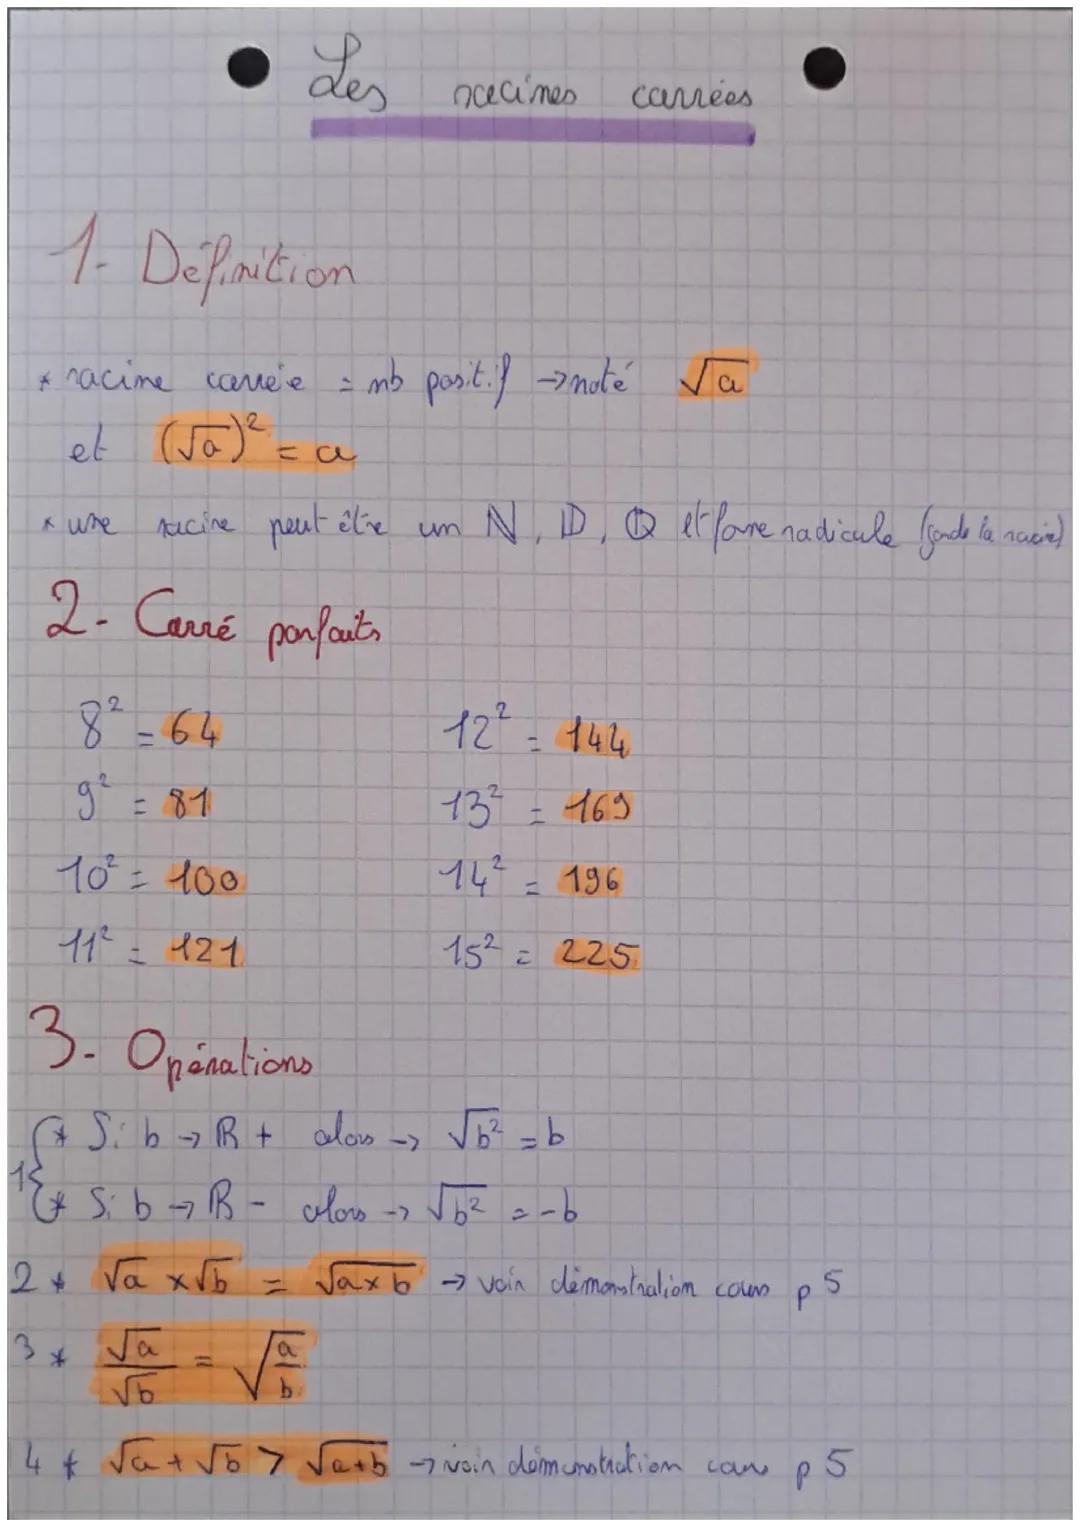 Les racines carrées
1- Définition
* racine carrée = nb positif → noté √a
et (√a)² = a
* une racine peut être un N, D, Q et forme radicale (garde la racine)
2- Carré parfaits
8² = 64
9² = 81
10² = 100
11² = 121
12² = 144
13² = 169
14² = 196
15² = 225
3- Opérations
1 { * Si b → R + alors → √b² = b
* Si b → R - alors → √b² = -b
2 * √a × √b = √a×b → voir démonstration cours p 5
3 * √a/√b = √a/b
4 * √a + √b > √a+b → voir démonstration cours p 5